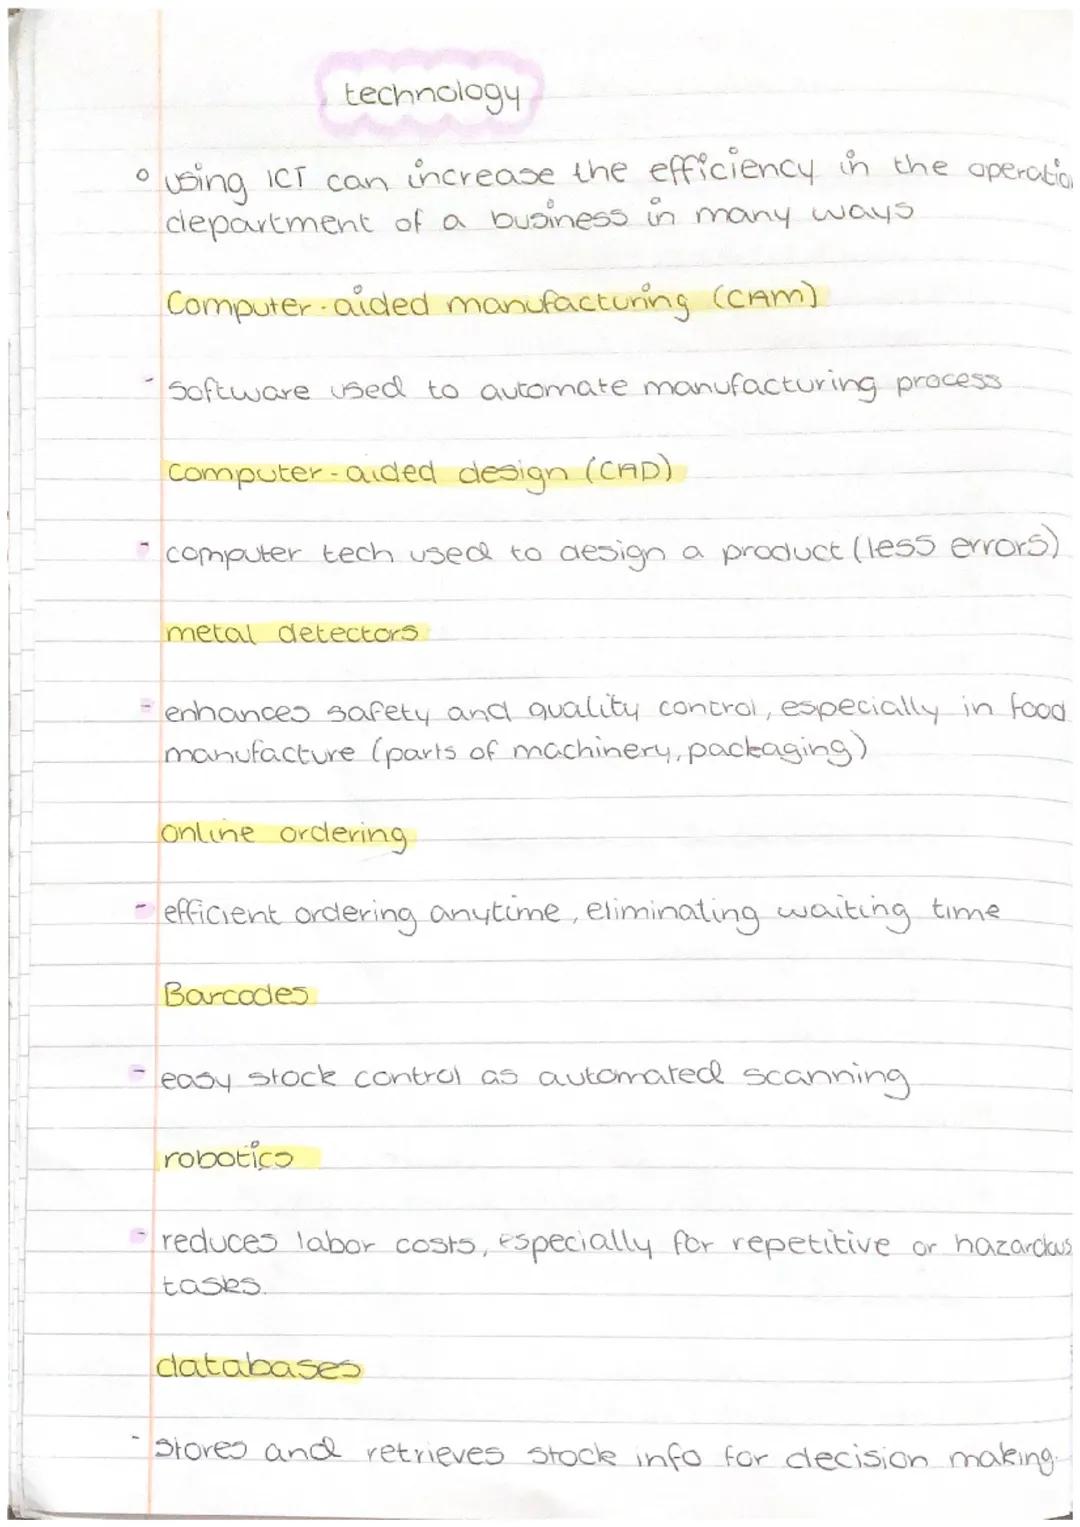 technology
° using ICT can increase the efficiency in the operation
department of a business in many ways
Computer-aided manufacturing (CAM)
- software used to automate manufacturing process
computer-aided design (CAD)
- computer tech used to design a product (less errors)
metal detectors
- enhances safety and quality control, especially in food
manufacture (parts of machinery, packaging)
online ordering
- efficient ordering anytime, eliminating waiting time
Barcodes
- easy stock control as automated scanning
robotics
- reduces labor costs, especially for repetitive or hazardous
tasks.
databases
- stores and retrieves stock info for decision making.